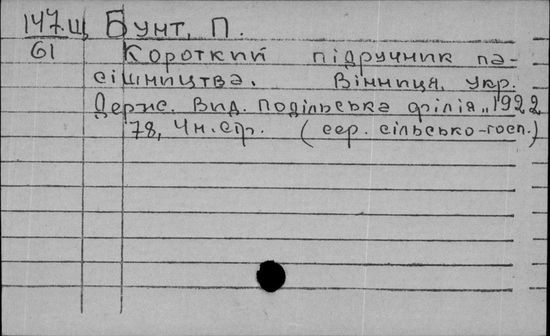 147.Щ Бунт, П.
61 Короткий підручник па-
сішництва. Вінниця. Укр.
Держ. Вид. Подільська філія., 1922
78, 4 н. стр. (сер. сільсько-госп.)